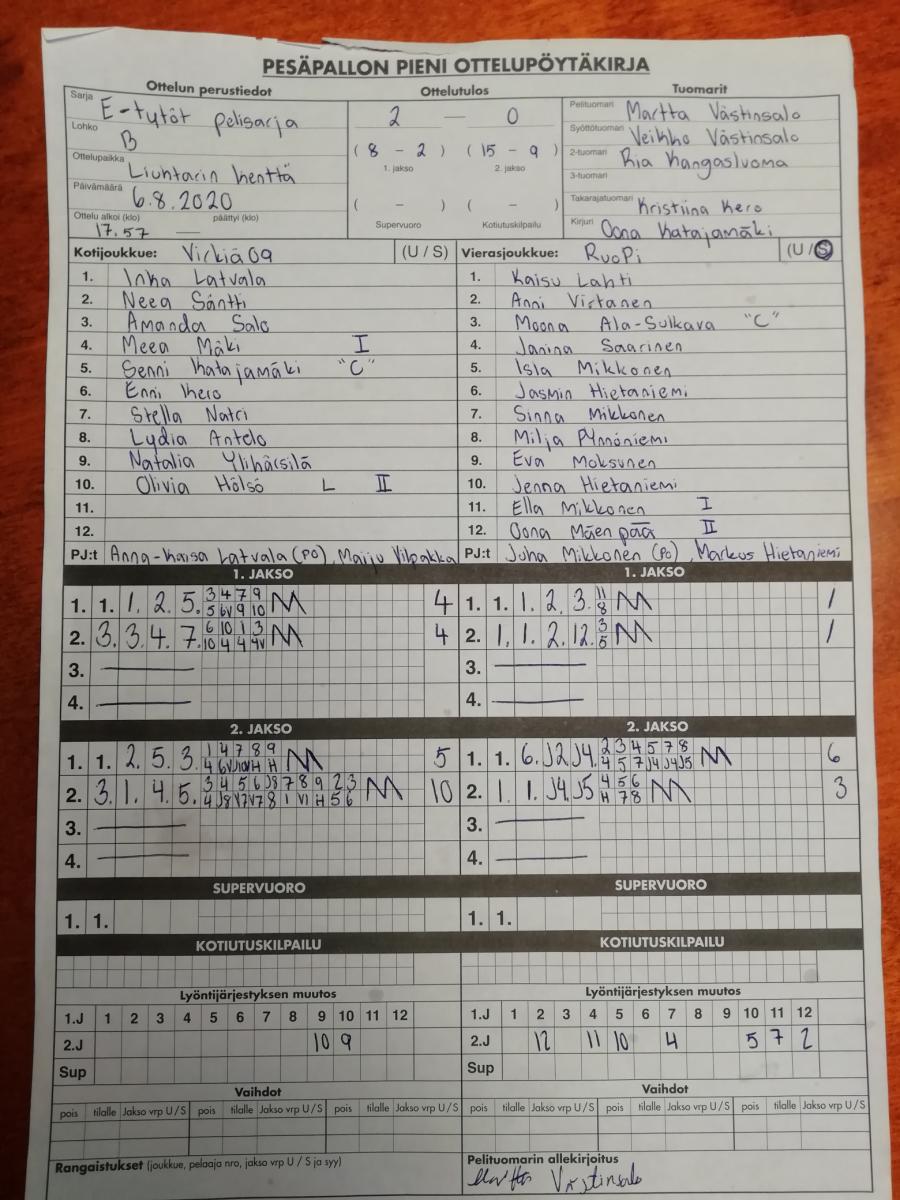 PESÄPALLON PIENI OTTELUPÖYTÄKIRJA
Ottelun perustiedot Ottelutulos Tuomarit
Sarja E-tytöt pelisarja 2 — 0 Pelituomari Martta Västinsalo
Lohko B Syöttötuomari Veikko Västinsalo
Ottelupaikka Liuhtarin kenttä ( 8 - 2 ) ( 15 - 9 ) 2-tuomari Ria Kangasluoma
1. jakso 2. jakso 3-tuomari
Päivämäärä 6.8.2020 ( - ) ( - ) Takarajatuomari Kristiina Kero
Ottelu alkoi (klo) 17.57 päättyi (klo) — Supervuoro Kotiutuskilpailu Kirjuri Oona Katajamäki
Kotijoukkue: Virkiä 09 (U / S) Vierasjoukkue: RuoPi (U / S)
1. Inka Latvala 1. Kaisu Lahti
2. Neea Säntti 2. Anni Virtanen
3. Amanda Salo 3. Moona Ala-Sulkava "C"
4. Meea Mäki I 4. Janina Saarinen
5. Senni Katajamäki "C" 5. Isla Mikkonen
6. Enni Kero 6. Jasmin Hietaniemi
7. Stella Natri 7. Sinna Mikkonen
8. Lydia Antelo 8. Milja Pynnöniemi
9. Natalia Ylihärsilä 9. Eva Moksunen
10. Olivia Hölsö L II 10. Jenna Hietaniemi
11. 11. Ella Mikkonen I
12. 12. Oona Mäenpää II
PJ:t Anna-Kaisa Latvala (PO), Maiju Vilpakka PJ:t Juha Mikkonen (PO), Markus Hietaniemi
1. JAKSO 1. JAKSO
3 4 7 9 11
1. 1. 1. 2. 5. 5 6V 9 10 M 4 1. 1. 1. 2. 3. 8 M 1
6 10 1 3 3
2. 3. 3. 4. 7. 10 4 4 4V M 4 2. 1. 1. 2. 12. 5 M 1
3. — 3. —
4. — 4. —
2. JAKSO 2. JAKSO
1 4 7 8 9 2 3 4 5 7 8
1. 1. 2. 5. 3. M 5 1. 1. 6. J2 J4. 4 5 7 J4 J4 J5 M 6
3 4 5 6 J8 7 8 9 2 3 4 5 6
2. 3. 1. 4. 5. M 10 2. 1. 1. J4. J5 H 7 8 M 3
3. — 3. —
4. — 4. —
SUPERVUORO SUPERVUORO
1. 1. 1. 1.
KOTIUTUSKILPAILU KOTIUTUSKILPAILU
Lyöntijärjestyksen muutos Lyöntijärjestyksen muutos
1.J 1 2 3 4 5 6 7 8 9 10 11 12 1.J 1 2 3 4 5 6 7 8 9 10 11 12
2.J 10 9 2.J 12 11 10 4 5 7 2
Sup Sup
Vaihdot Vaihdot
pois tilalle Jakso vrp U / S pois tilalle Jakso vrp U / S pois tilalle Jakso vrp U / S pois tilalle Jakso vrp U / S pois tilalle Jakso vrp U / S pois tilalle Jakso vrp U / S
Rangaistukset (joukkue, pelaaja nro, jakso vrp U / S ja syy) Pelituomarin allekirjoitus
Martta Västinsalo